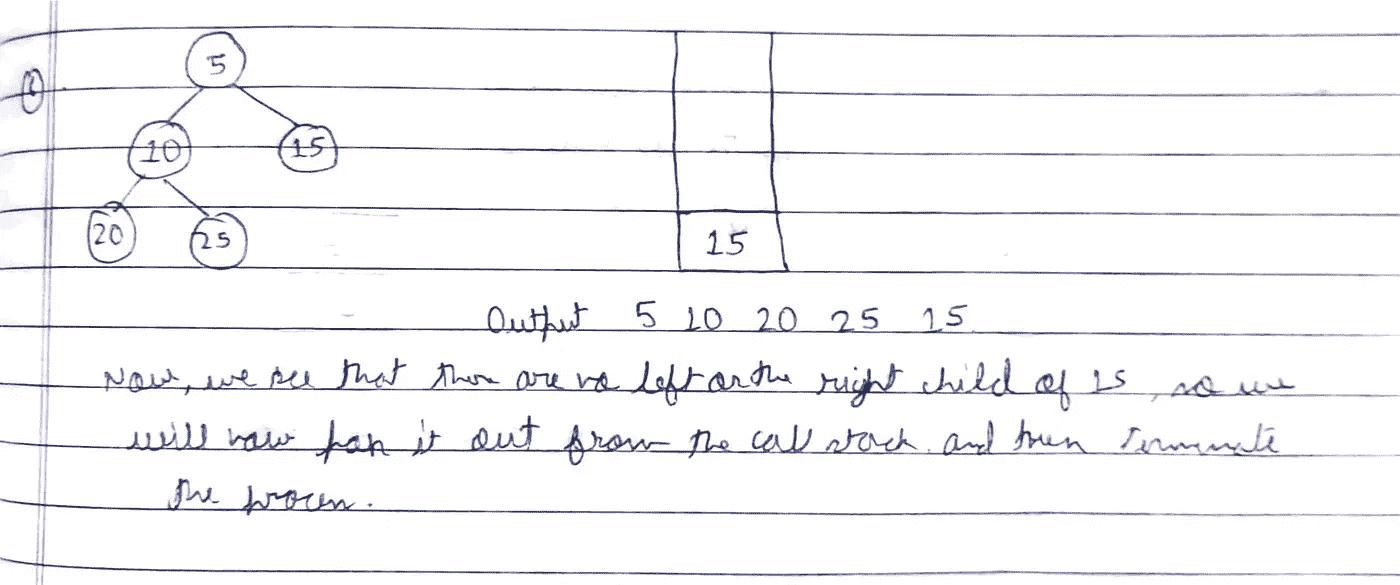 5
10 15
20 25
15
Output 5 10 20 25 15
Now, we see that there are no left or the right child of 15, so we
will now pop it out from the call stack and then terminate
the process.